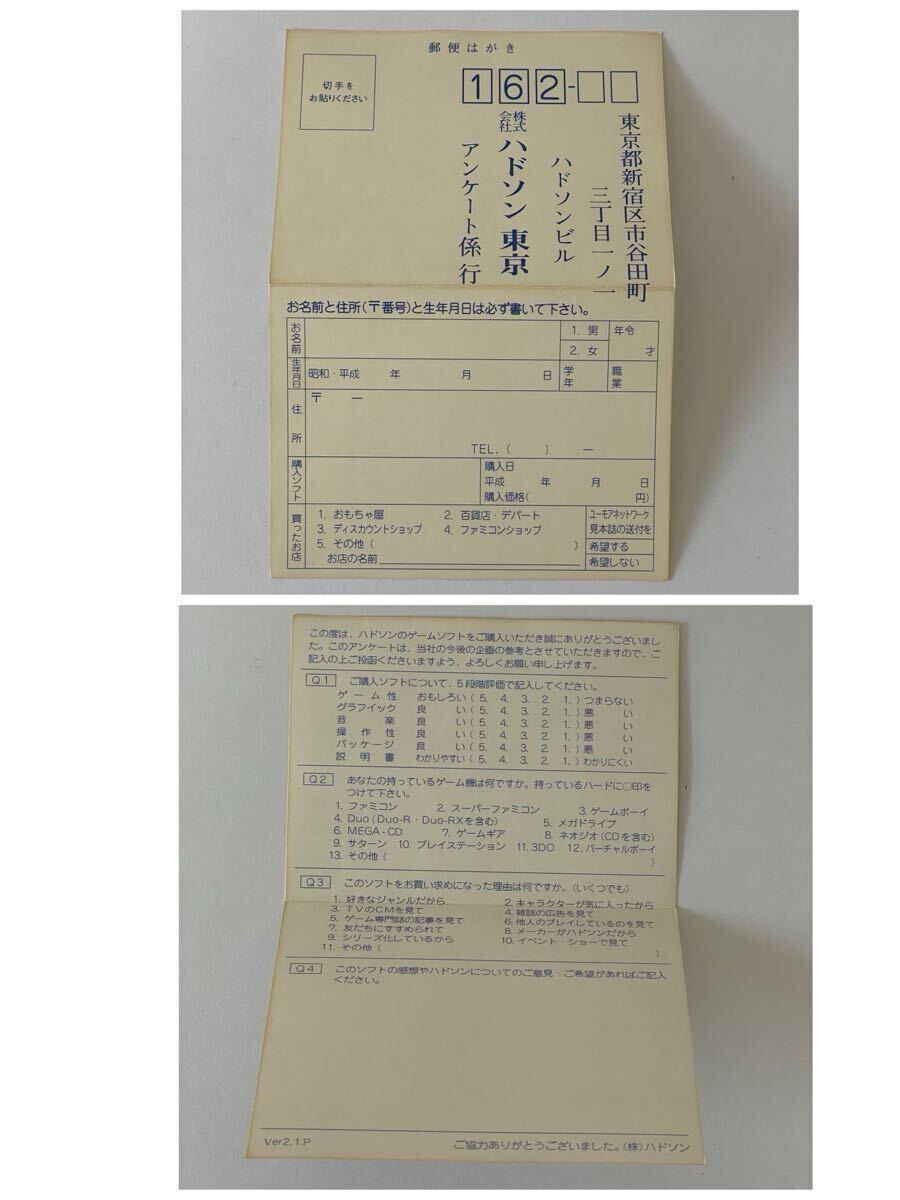 郵便はがき
切手を
お貼りください
162-
東京都新宿区市谷田町
三丁目一ノ一
ハドソンビル
株式会社 ハドソン 東京
アンケート係 行
お名前と住所(〒番号)と生年月日は必ず書いて下さい。
お名前
1. 男
2. 女
年令
才
生年月日
昭和・平成 年 月 日
学年
職業
住所
〒 ー
TEL. ( ) ー
購入ソフト
購入日
平成 年 月 日
購入価格( 円)
買ったお店
1. おもちゃ屋 2. 百貨店・デパート
3. ディスカウントショップ 4. ファミコンショップ
5. その他( )
お店の名前
ユーモアネットワーク
見本誌の送付を
希望する
希望しない
この度は、ハドソンのゲームソフトをご購入いただき誠にありがとうございまし
た。このアンケートは、当社の今後の企画の参考とさせていただきますので、ご
記入の上ご投函くださいますよう、よろしくお願い申し上げます。
Q1 ご購入ソフトについて、5段階評価で記入してください。
ゲーム性 おもしろい( 5. 4. 3. 2. 1. )つまらない
グラフイック 良い( 5. 4. 3. 2. 1. )悪い
音楽 良い( 5. 4. 3. 2. 1. )悪い
操作性 良い( 5. 4. 3. 2. 1. )悪い
パッケージ 良い( 5. 4. 3. 2. 1. )悪い
説明書 わかりやすい( 5. 4. 3. 2. 1. )わかりにくい
Q2 あなたの持っているゲーム機は何ですか。持っているハードに○印を
つけて下さい。
1. ファミコン 2. スーパーファミコン 3. ゲームボーイ
4. Duo(Duo-R・Duo-RXを含む) 5. メガドライブ
6. MEGA-CD 7. ゲームギア 8. ネオジオ(CDを含む)
9. サターン 10. プレイステーション 11. 3DO 12. バーチャルボーイ
13. その他( )
Q3 このソフトをお買い求めになった理由は何ですか。(いくつでも)
1. 好きなジャンルだから 2. キャラクターが気に入ったから
3. TVのCMを見て 4. 雑誌の広告を見て
5. ゲーム専門誌の記事を見て 6. 他人のプレイしているのを見て
7. 友だちにすすめられて 8. メーカーがハドソンだから
9. シリーズ化しているから 10. イベント・ショーで見て
11. その他( )
Q4 このソフトの感想やハドソンについてのご意見・ご希望があればご記入
ください。
Ver2.1.P ご協力ありがとうございました。(株)ハドソン